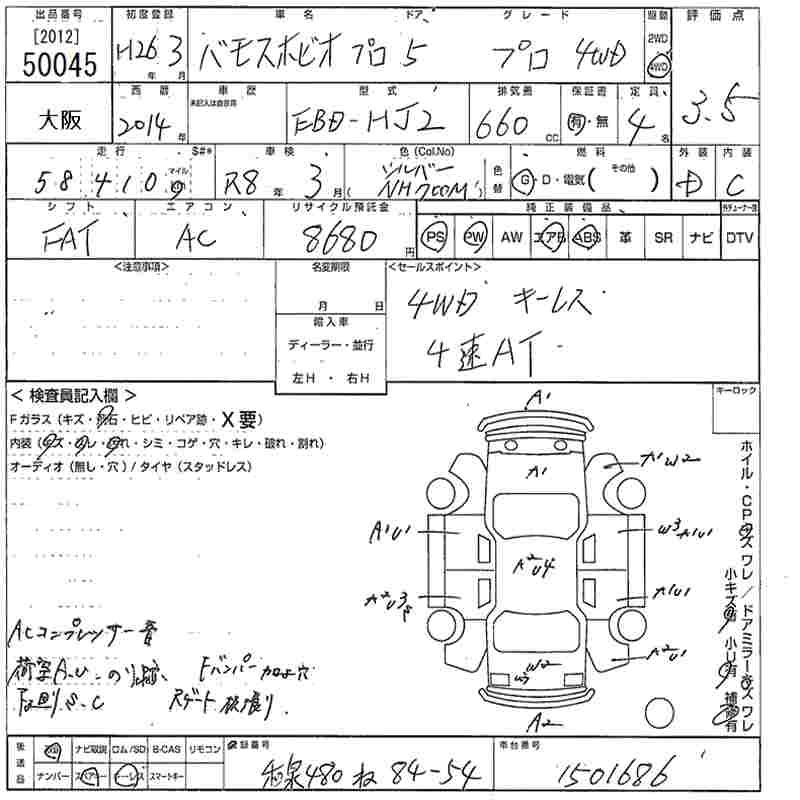 出品番号 初度登録 車名 ドア グレード 駆動 評価点
[2012] 50045 H26年 3月 バモスホビオ プロ 5 プロ 4WD 2WD 4WD 3.5
大阪 西暦 車歴 型式 排気量 保証書 定員
2014年 未記入は自家用 EBD-HJ2 660cc 有・無 4名
走行 $#* 車検 色(Col.No) 色替 燃料 外装 内装
58410 マイル km R8年 3月 (シルバー NH700M) G・D・電気 (その他) D C
シフト エアコン リサイクル預託金 純正装備品
FAT AC 8680円 PS PW AW エアB ABS 革 SR ナビ DTV
<注意事項> 名変期限 <セールスポイント>
月 日 4WD キーレス
輸入車 4速AT
ディーラー・並行
左H・右H
<検査員記入欄> キーロック
Fガラス(キズ・飛石・ヒビ・リペア跡・X要)
内装(キズ・汚レ・ スレ・シミ・コゲ・穴・キレ・破れ・割れ)
オーディオ(無し・穴)/タイヤ(スタッドレス)
ホイル・CPキズワレ/ドアミラーキズワレ
小キズ有 小U有 補修有
A1
A1
A1W2
A1U1
W3 A1U1
A2U4
A2U3S
A1U1
W2
W3
A2U1
A2
ACコンプレッサー音
荷室A.U. Fバンパー 穴
下回りS.C Rゲート
後送品 取説 ナビ取説 ロム/SD B-CAS リモコン 登録番号 車台番号
ナンバー スペアキー キーレス スマートキー 和泉480 ね 84-54 1501686